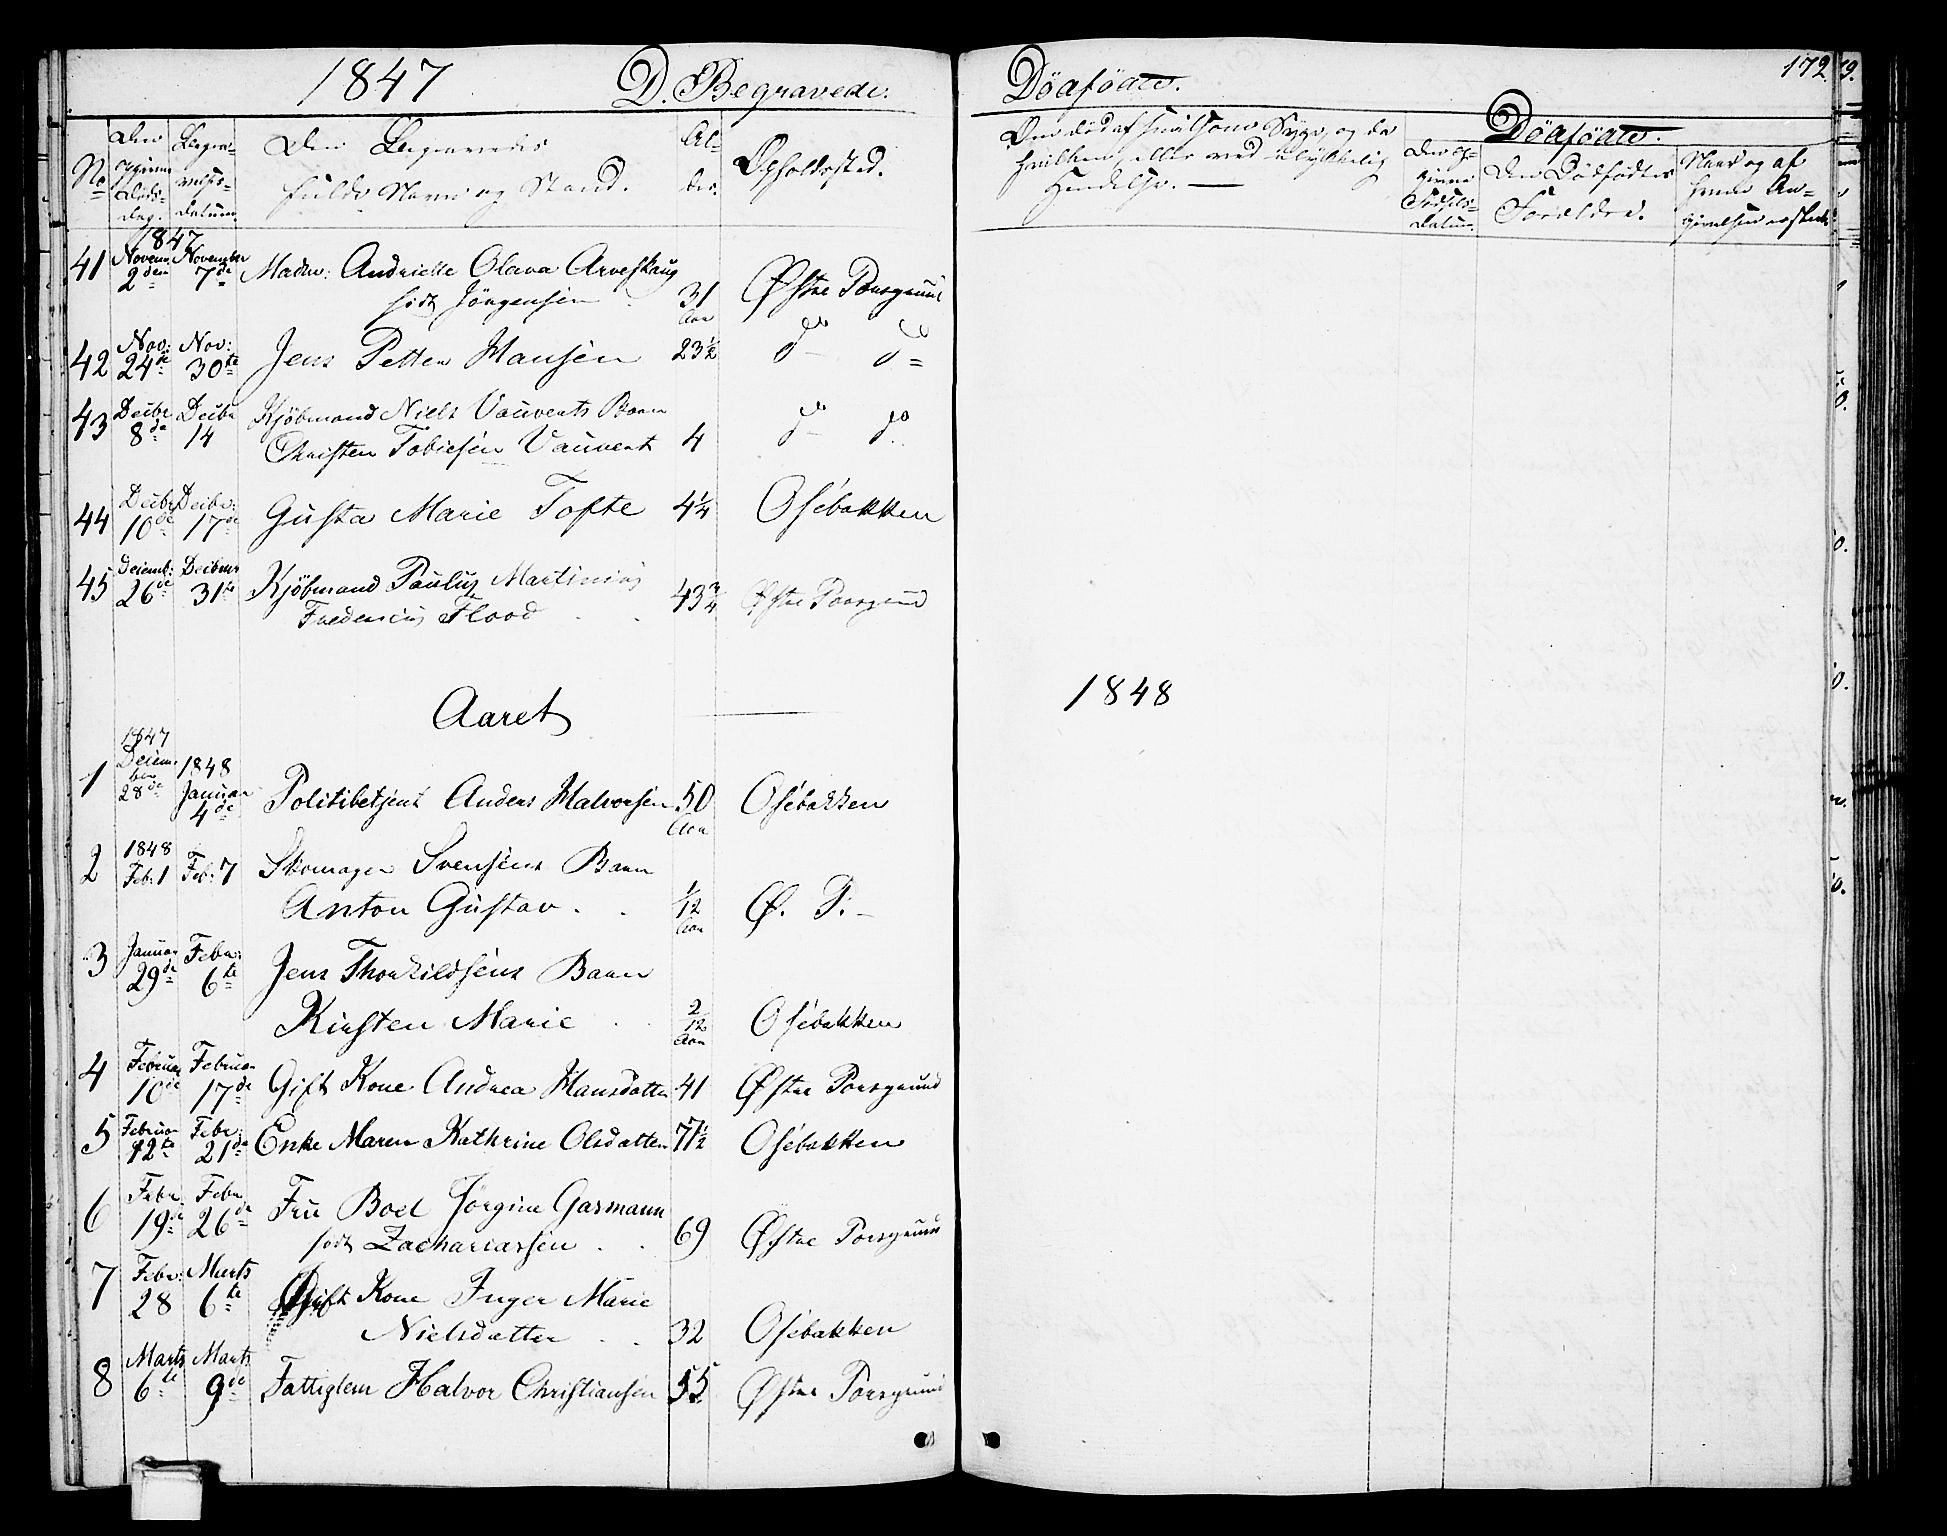 1847 D. Begravede.
No
Den opgivne Døds-Dag.
Begravelses-Datum.
Den Begravedes fulde Navn og Stand.
Alder.
Opholdssted.
1847
41 Novem: 2den November 7de Madm: Andrielle Olava Arveskaug
født Jörgensen 31 Aar Østre Porsgrund
42 Nov: 24de Nov: 30te Jens Petter Hansen 23½ do do
43 Decbr 8de Decbr 14 Kjöbmand Niels Vauverts Barn
Christen Tobiesen Vauvert 4 do do
44 Decbr 10de Decbr: 17de Gusta Marie Tofte 4¼ Osebakken
45 Decemb: 26de Decbmr 31te Kjöbmand Paulus Martinius
Fredericus Flood 43¾ Østre Porsgrund
Aaret
1 1847 December 28de 1848 Januar 4de Politibetjent Anders Halvorsen 50 Aar Osebakken
2 1848 Feb: 1 Feb: 7 Skomager Svensens Barn
Anton Gustav 1/12 Aar Ø. P.
3 Januar 29de Febr: 6te Jens Thorkildsens Barn
Kirsten Marie 2/12 Aar Osebakken
4 Februar 10de Februar 17de Gift Kone Andrea Hansdatter 41 Østre Porsgrund
5 Februar 12te Febr: 21de Enke Maren Kathrine Olsdatter 71½ Osebakken
6 Febr 19de Febr 26de Fru Boel Jörgine Garmann
født Zachariassen 69 Østre Porsgrund
7 Febr: 28 Marts 6te Gift Kone Inger Marie
Nielsdatter 32 Osebakken
8 Marts 6te Marts 9de Fattiglem Halvor Christiansen 55 Østre Porsgrund
Dødfødte.
172
Om død af hvilken, eller ved ulykkelig
Hændelse.
Dødfødte.
Den opgivne Fødsels-Datum.
Den Dødfødtes
Forældre.
Naar og af
hvem An-
1848